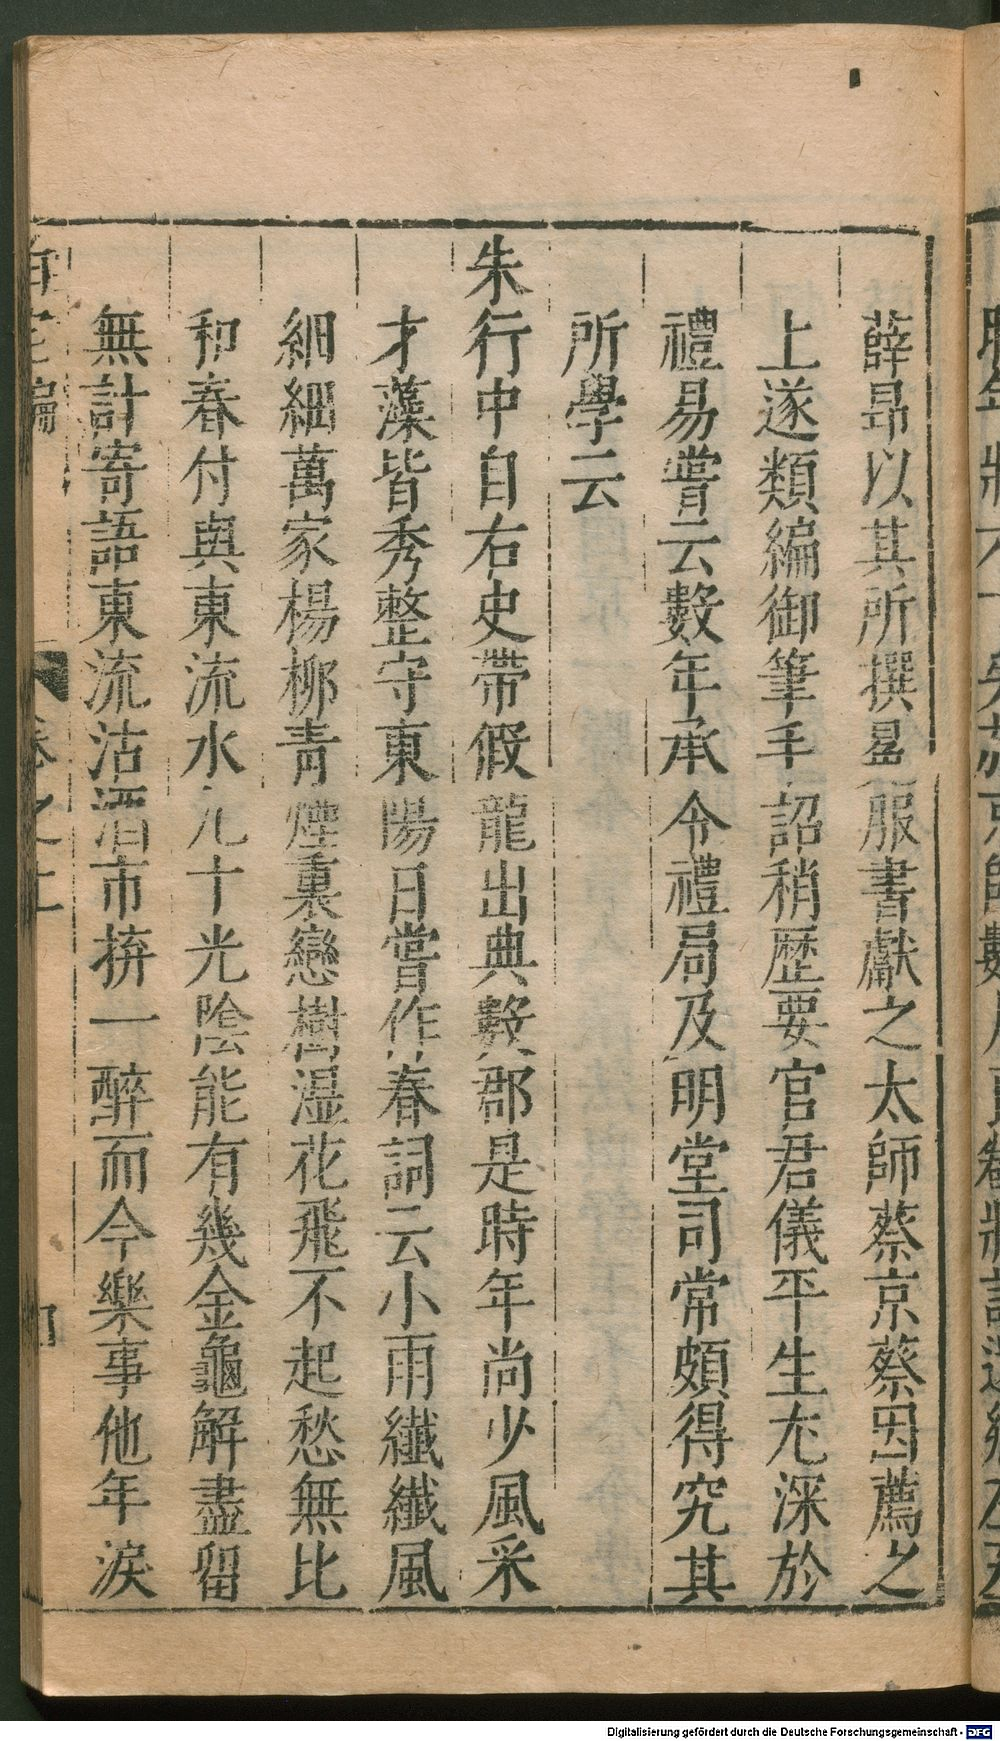 薛昂以其所撰冕服書獻之太師蔡京蔡因薦之
上遂類編御筆手詔稍歷要官君儀平生尤深於
禮易嘗云數年承令禮局及明堂司常頗得究其
所學云
朱行中自右史帶假龍出典數郡是時年尚少風采
才藻皆秀整守東陽日嘗作春詞云小雨纖纖風
細細萬家楊柳青煙裏戀樹湿花飛不起愁無比
和春付與東流水九十光陰能有幾金龜解盡留
無計寄語東流沽酒市拚一醉而今樂事他年淚
卷之
Digitalisierung gefördert durch die Deutsche Forschungsgemeinschaft - DFG